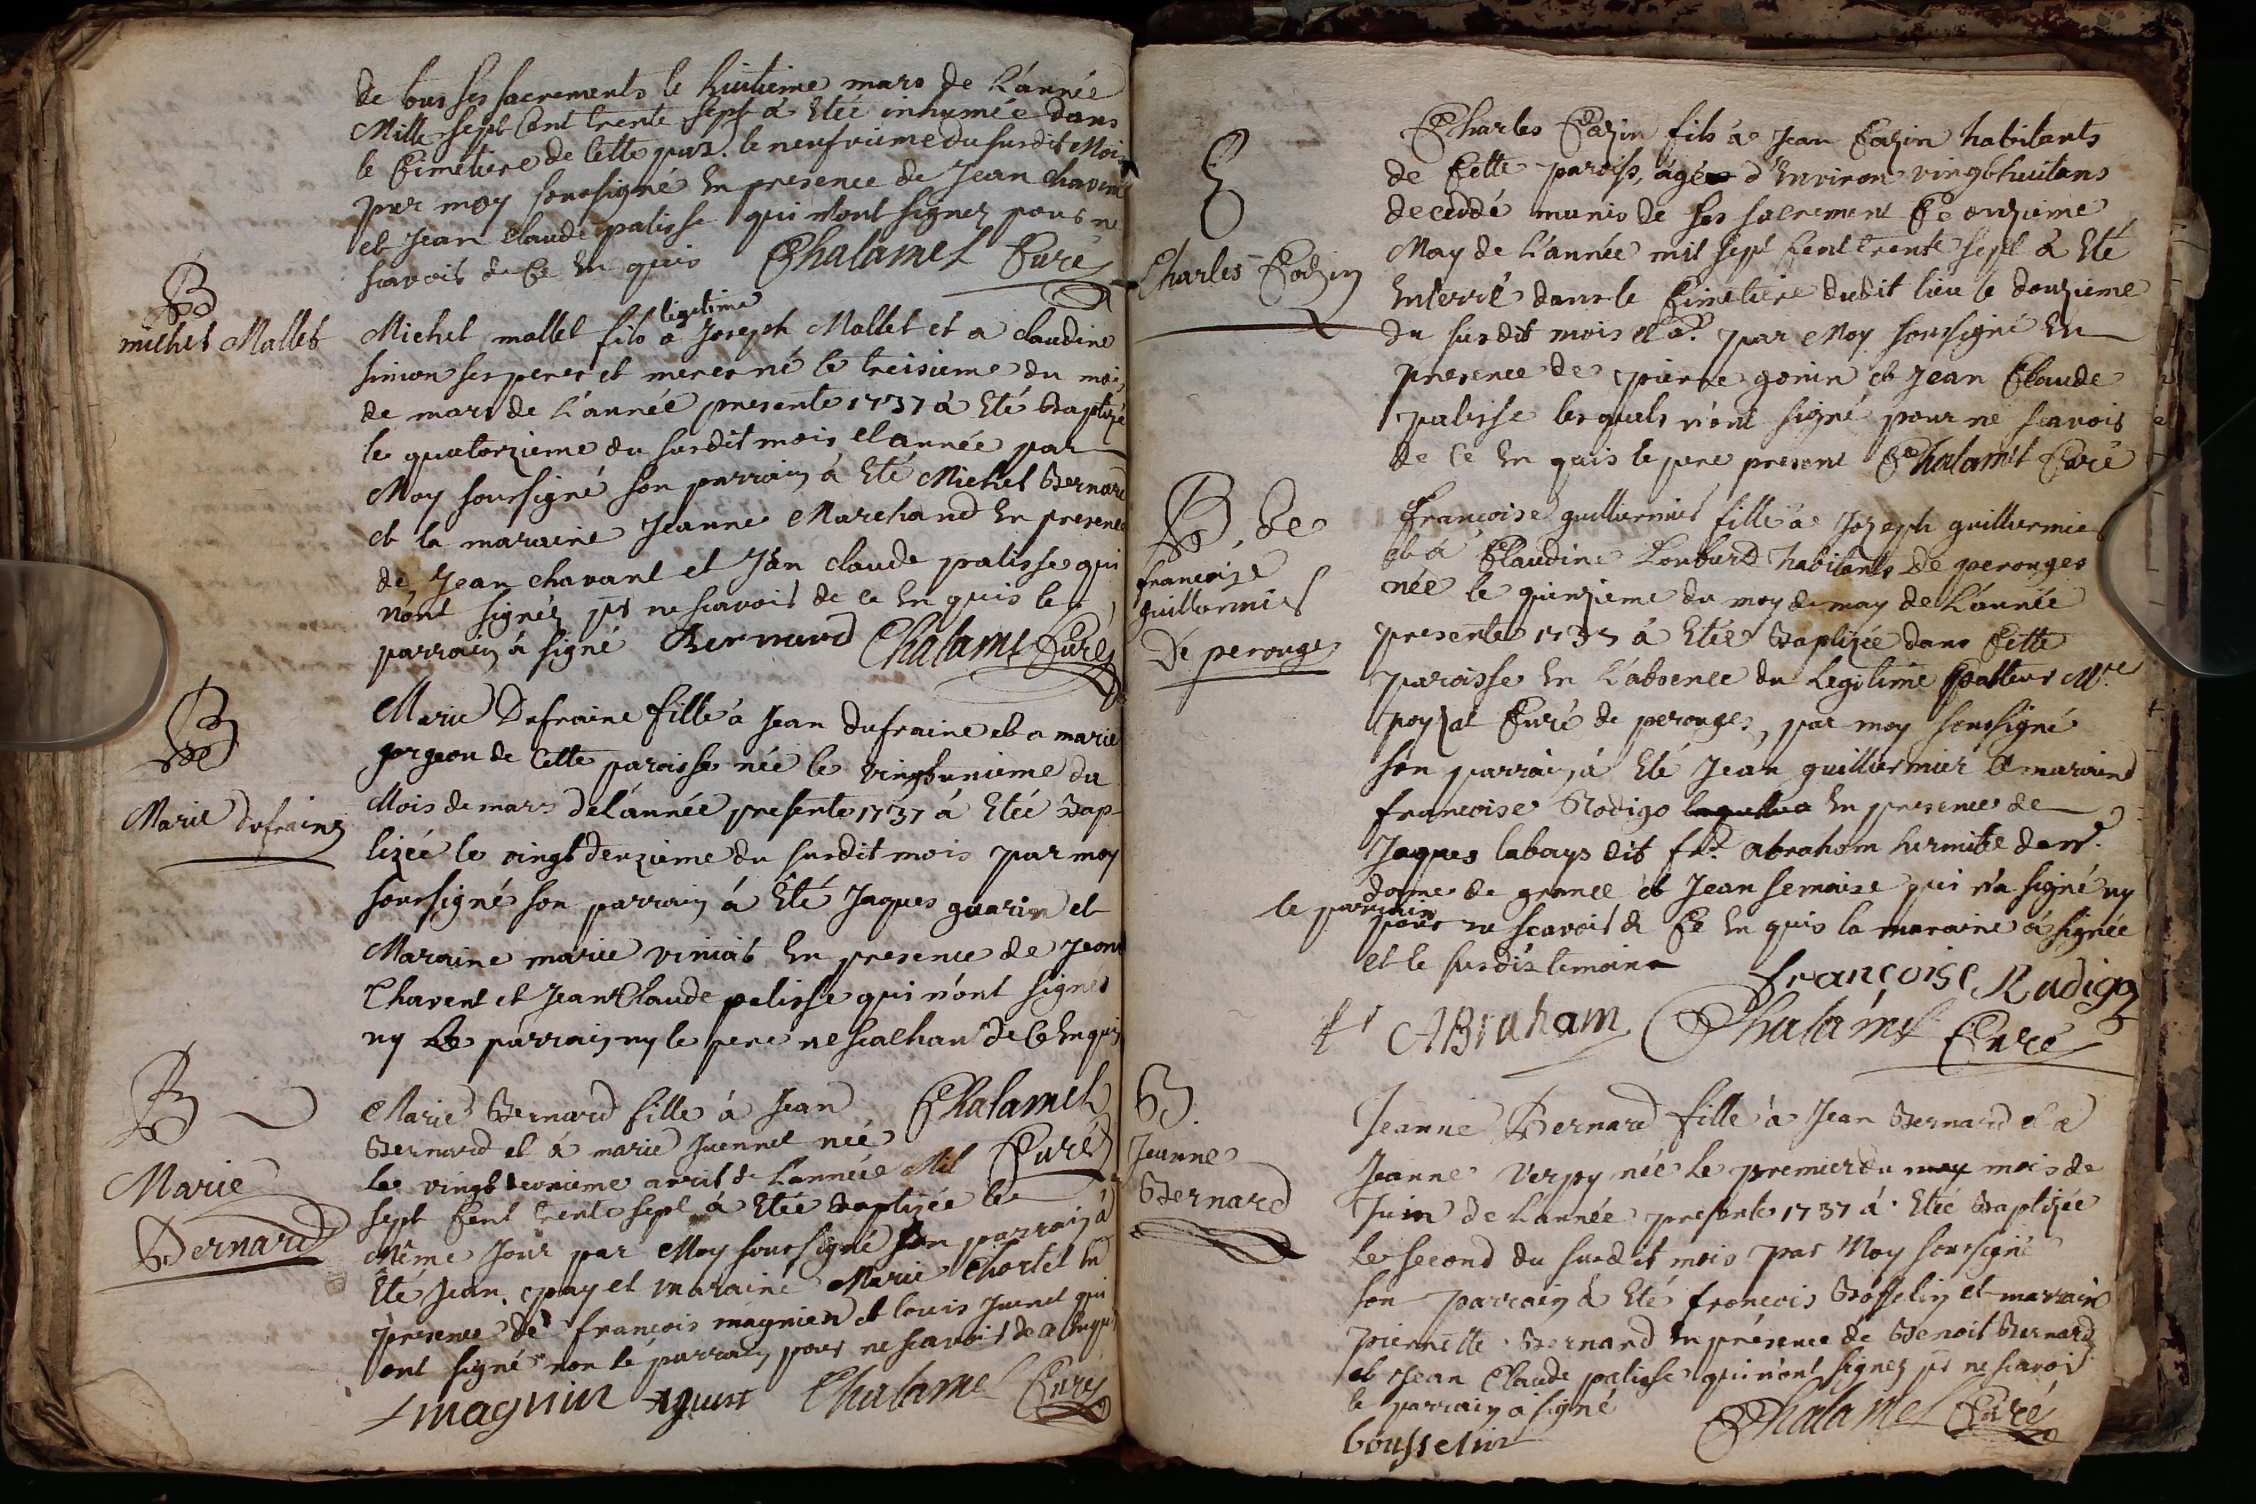 de tous ses sacrements le huitieme mars de L'année
Mille sept Cent trente sept à Etée inhumée dans
le Cimetiere de Cette par. le neufvieme du susdit Moi
par moy soussigné En presence de Jean chavent
et Jean Claude palisse qui n'ont signez pour ne
scavoir de Ce En quis Chalamel Curé
B
michel Mallet
legitime
Michel mallet fils a Joseph Mallet et a claudine
simon ses peres et meres né le treisieme du moi
de mars de L'année presente 1737 à Eté Baptizé
le quatorzieme du susdit mois et année par
Moy soussigné son parrain à Eté Michel Bernard
et la maraine Jeanne Marchand En presence
de Jean chavant et Jean claude palisse qui
n'ont signéz pr ne scavoir de ce En quis le
parrain à signé Bernard Chalamel Curé
B
Marie Dufraine
Marie Dufraine fille a Jean dufraine et a marie
gorgeon de Cette paroisse née le vingt unieme du
Mois de mars de l'année presente 1737 à Etée Bap
tizée le vingt deuzieme du susdit mois par moy
soussigné son parrain à Eté Jaques guarin et
Maraine marie viniat En presence de Jean
Chavent et Jean Claude palisse qui n'ont signés
ny Le parrain ny le pere ne scachan de Ce En quis
Chalamel
Curé
B
Marie
Bernard
Marie Bernard fille à Jean
Bernard et à marie Juennet née
le vingt avril de L'année Mil
sept Cent trente sept à Etée Baptizée le
Même Jour par Moy soussigné son parrain à
Eté Jean pay et maraine Marie Chortet En
presence de françois magnien et louis Juenet qui
ont signé non le parrain pour ne scavoir de ce Enquis
magnin Chalamel Curé
E
Charles Cozin
Charles Cozin fils a Jean Cozin habitants
de Cette paroiss, âgé d'Environ vingt huit ans
decedé munis de ses sacrement Ce onzieme
May de L'année mil sept Cent trente sept à Eté
Enterré dans le Cimetiere dudit lieu le douzieme
du susdit mois et a. par Moy soussigné En
presence de pierre gonin et Jean Claude
palisse lesquels n'ont signé pour ne scavoir
de Ce En quis le pere present Chalamel Curé
B de
françoise
guillermier
De perouges
françoise guillermier fille a Jozeph guillermier
et à Claudine Lombard habitants De perouges
née le quinzieme du moy de may de L'année
presente 1737 à Etée Baptizée dans Cette
paroisse En L'absence du Legitime Pasteur Mre
poyzat Curé de perouges, par moy soussigné
son parrain à Eté Jean guillermier maraine
françoise Rodigo En presence de
Jaques labays dit fr. abraham hermitte de nr.
dame de grance et Jean semaise qui n'a signé ny
le parrain
pour ne scavoir de Ce En quis la maraine à signée
et le susdit temoin
françoise Radigo
fr ABraham Chalamel Curé
B.
Jeanne
Bernard
Jeanne Bernard fille à Jean Bernard et a
Jeanne Verpy née Le premier du mois de
Juin de L'année presente 1737 à Etée Baptizée
Le second du susdit mois par Moy soussigné
son parrain à Eté françois Bosselin et marrain
pierrette Bernard En présence de Benoit Bernard
et Jean Claude palisse qui n'ont signez pr ne scavoir
le parrain à signé Chalamel Curé
bousselin